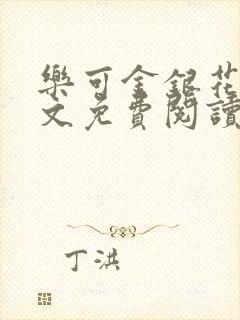 樂可金銀花
文免費閱讀
丁洪